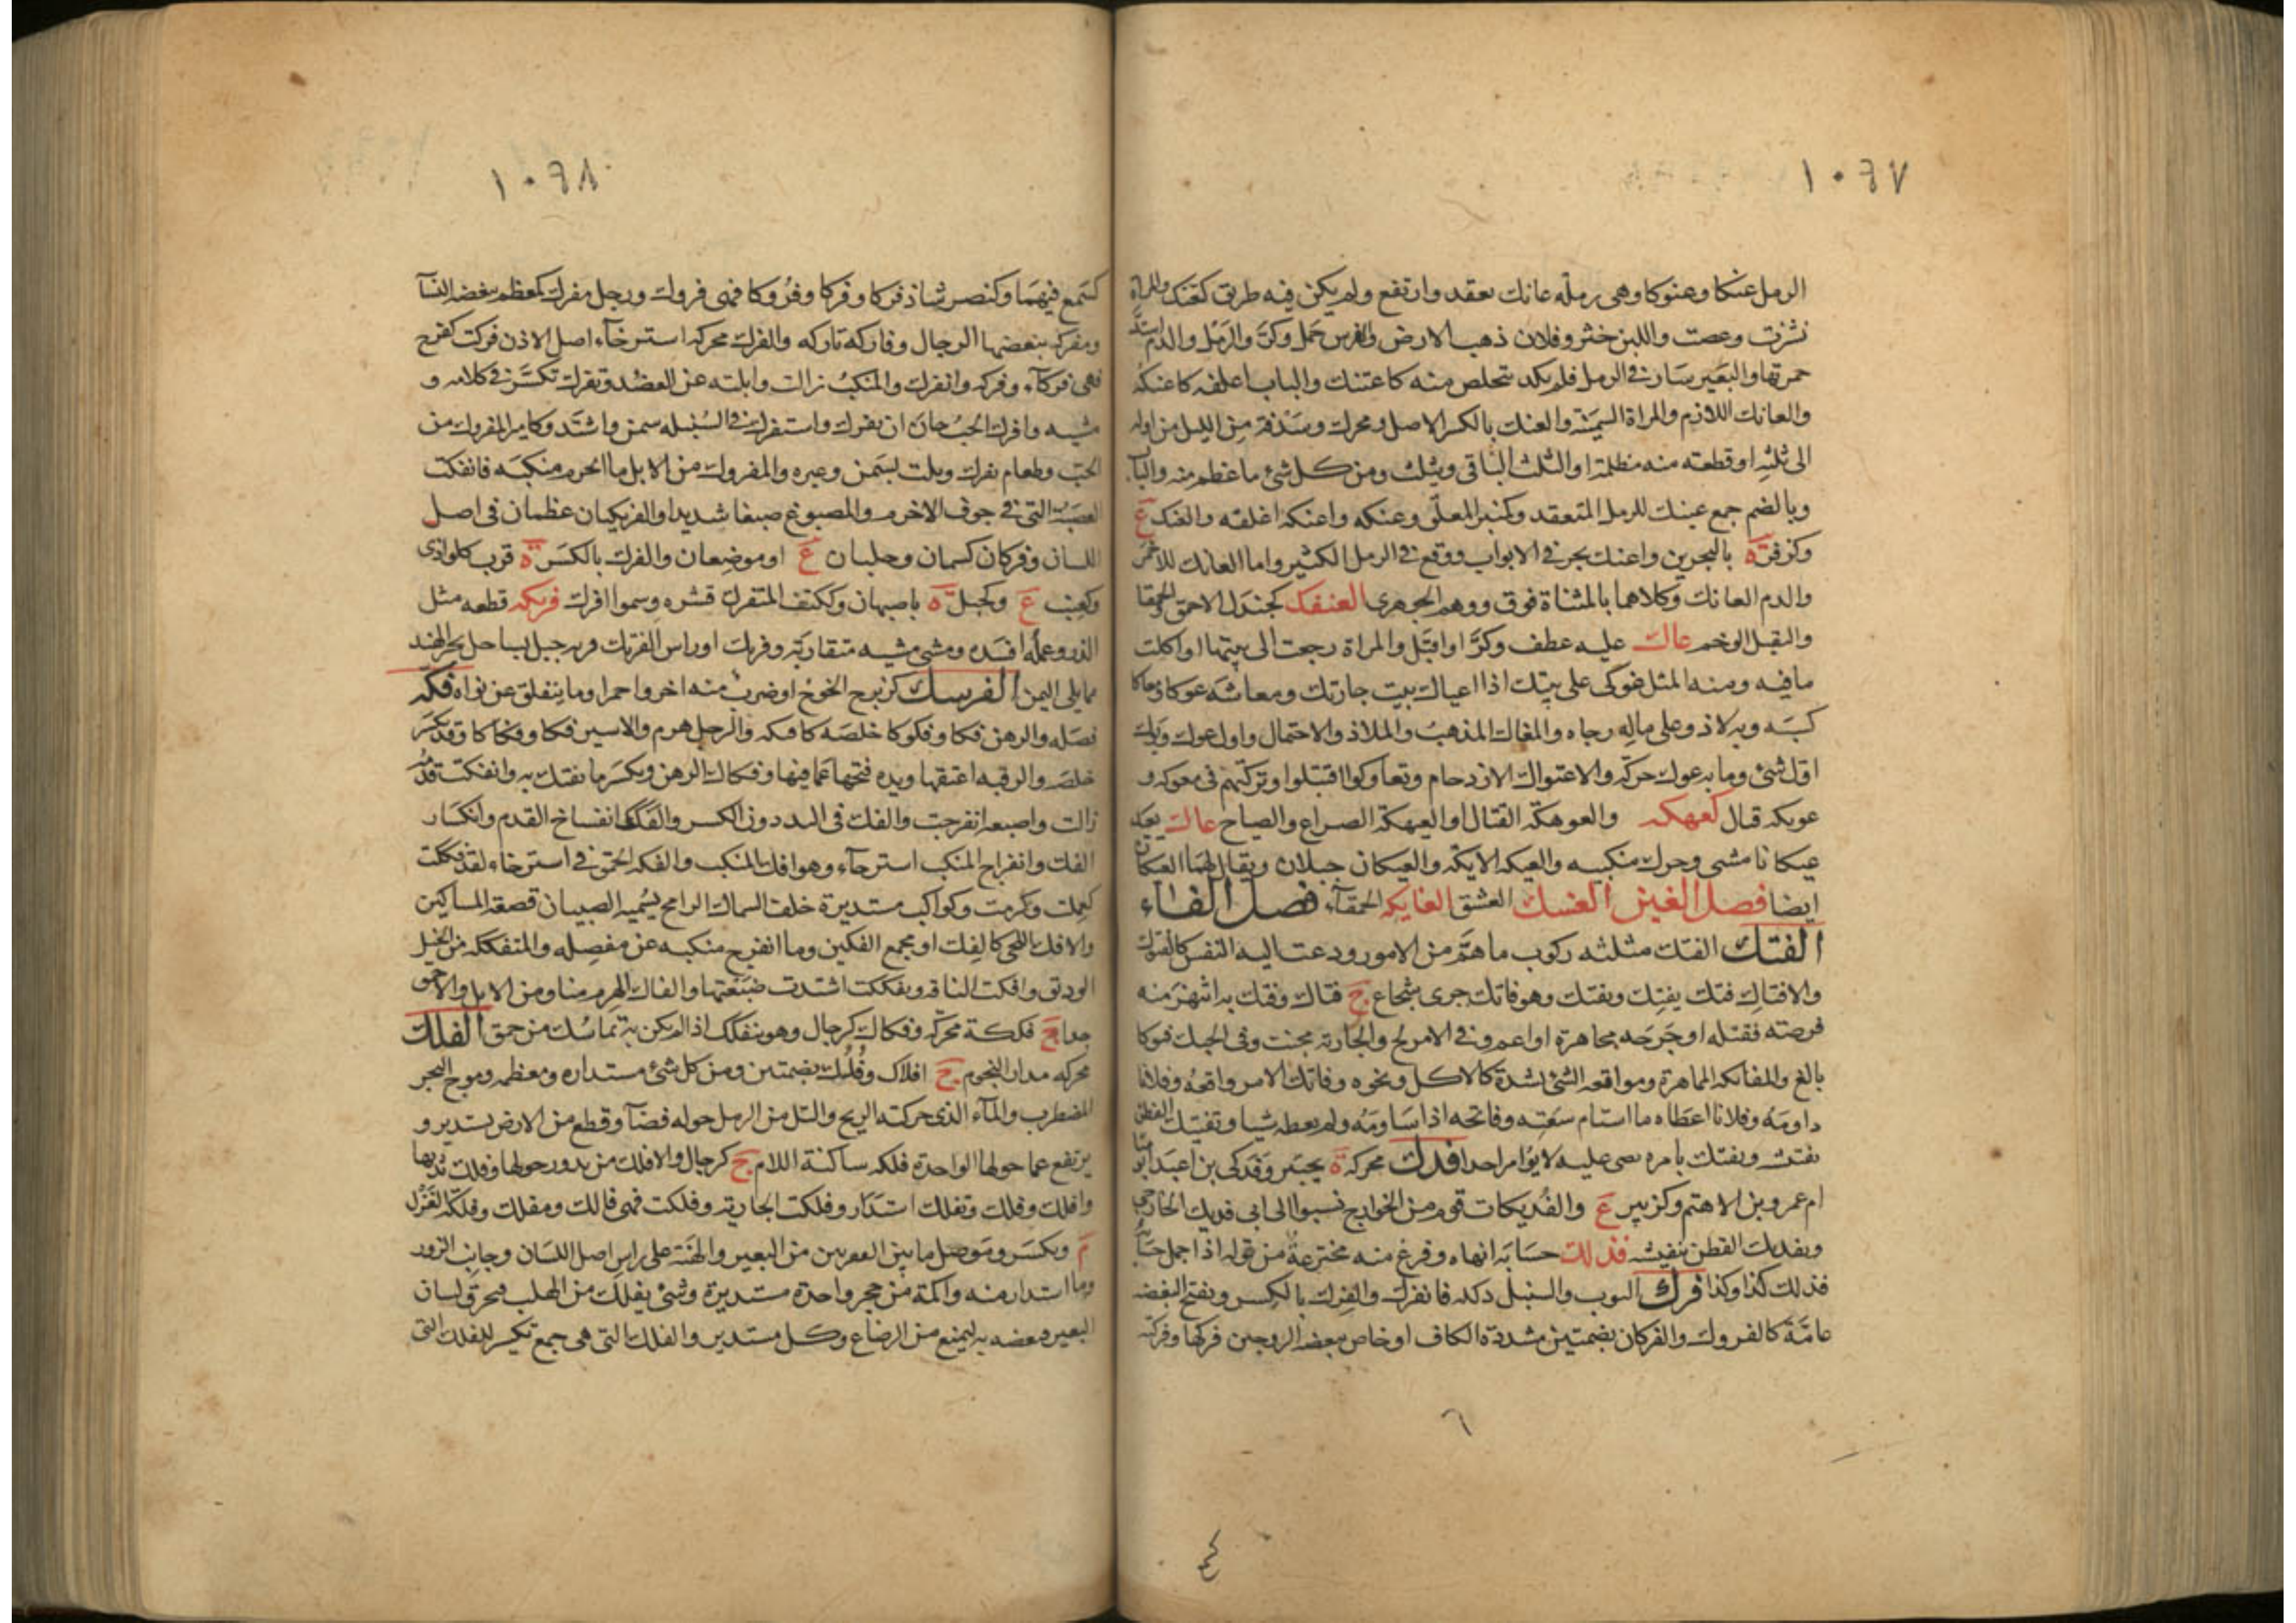 ١٠٦٧
الرمل عنكا وعنوكا وهى رملة عانك تعقد وارتفع ولم يكن فيه طريق كتعنك والمراة
نشزت وعصت واللبن خثر وفلان ذهب الارض والفرس حمل وكرّ والرمل والدم اشتدّ
حمرتها والبعير سار فى الرمل فلم يكد يتخلص منه كاعتنك والباب اغلقه كاعنكه
والعانك اللازم والمراة السمينة والعنك بالكسر الاصل ومحرك وسدفة من الليل من اوله
الى ثلثه او قطعته منه مظلمة او الثلث الباقى ويثلث ومن كل شئ ما عظم منه والباب
وبالضم جمع عنيك للرمل المتعقد وكمنبر المعلّق وعنكه واعنكه اغلقه والعنك ع
وكزفر ة بالبحرين واعنك تجر فى الابواب ووقع فى الرمل الكثير واما العانك للاحمر
والدم العانك وكلاهما بالمثناة فوق ووهم الجوهرى العنفك كجندل الاحمق والحمقا
والثقيل الوخم عاك عليه عطف وكرّ او اقبل والمراة رجعت الى بيتها او اكلت
ما فيه ومنه المثل عوكى على بيتك اذا اعياك بيت جارتك ومعاشه عوكا ومعاكا
كسبه وبه لاذ وعلى ماله رجاه والمعاك المذهب والملاذ والاحتمال واول عوك وبوك
اول شئ وما به عوك حركة والاعتواك الازدحام وتعاوكوا اقتتلوا وتركتهم فى معوكه و
عويكه قتال كعهكه والعوهكة القتال او العيهكة الصراع والصياح عاك يعيك
عيكانا مشى وحرك منكبيه والعيكه الايكة والعيكان جبلان ويقال لهما العيكان
ايضا فصل الغين الغسك العشق الغايكه الحمقآء فصل الفاء
الفتك الفتك مثلثه ركوب ما همّ من الامور ودعت اليه النفس كالفتوك
والافتاك فتك يفتك ويفتك وهو فاتك جرى شجاع ج فتاك وفتك به انتهز منه
فرصته فقتله او جرحه مجاهرة او اعم وفى الامر لج والجارية مجنت وفى الخبث فتوكا
بالغ والمفاتكه المماهرة ومواقعه الشئ بشدة كالاكل ونحوه وفاتك الامر واقعه وفلانا
داومه وفلانا اعطاه ما استام سعته وفاتحه اذا ساومه ولم يعطه شيا وتفتيك القطن
نفشه وتفتك بامره مضى عليه لا يؤامر احدا فدك محركه ة بخيبر وفدكى بن اعبد ابو ميا
ام عمرو بن الاهتم وكزبير ع والفديكات قوم من الخوارج نسبوا الى ابى فديك الخارجى
وتفديك القطن تنفيشه فذلك حسابه انهاه وفرغ منه مخترعة من قوله اذا اجمل حسابه
فذلك كذا وكذا فرك الثوب والسنبل دلكه فانفرك والفرك بالكسر ويفتح البغضه
عامّة كالفروك والفركان بضمتين مشددة الكاف او خاص ببغضه الزوجين فركها وفركته
١٠٦٨
كسمع فيهما وكنصر شاذ فركا وفركا وفروكا فهى فروك ورجل مفرك كمعظم تبغضه النسآ
ومفركة يبغضها الرجال وفاركه تاركه والفرك محركه استرخآء اصل الاذن فركت كفرح
فهى فركآء وفركه وانفرك والمنكب زالت وابلته عن العضد وتفرك تكسّر فى كلامه و
مشيه وافرك الحب حان ان يفرك واستفرك فى السنبله سمن واشتد وكامير المفروك من
الحب وطعام يفرك ويلت بسمن وغيره والمفروك من الابل ما انخرم منكبه فانفكت
العصبة التى فى جوف الاخرم والمصبوغ صبغا شديدا والفريكيان عظمان فى اصل
اللسان وفركان كسمان وجلبان ع او موضعان والفرك بالكسر ة قرب كلواذى
وكعنب ع وكجبل ة باصبهان وككتف المتفرك قشره وسموا افرك فرتكه قطعه مثل
الذر وعمله افسده ومشى مشيه متقاربة وفرتك او راس الفرتك قرية جبل بساحل بحر الهند
مما يلى اليمن الفرسك كزبرج الخوخ او ضرب منه اخر واحمرا وما ينفلق عن نواه فكه
فصله والرهن فكا وفكوكا خلصه كافتكه والرجل هرم والاسير فكا وفكاكا وقد يكسر
خلصه والرقبه اعتقها ويده فتحها عما فيها وفكاك الرهن ويكسر ما يفتك به وانفكت قدمه
زالت واصبعه انفرجت والفك فى اليد دون الكسر والفكك انفساخ القدم وانكسار
الفك وانفراج المنكب استرخآء وهو افك المنكب والفكه الحمق فى استرخاء لقد فككت
كعلمت وكرمت وكواكب مستديرة خلف السماك الرامح يسميه الصبيان قصعة المساكين
والافك اللحى كالفك او مجمع الفكين وما انفرج منكبه عن مفصله والمتفككه من الخيل
الودق وافكت الناقه وتفككت اشتدت ضبعتها والفاك الهرم منا ومن الابل والاحمق
جدا ج فككة محركه وفكاك كرجال وهو يتفكك اذا لم يكن به تماسك من حمق الفلك
محركه مدار النجوم ج افلاك وفلك بضمتين ومن كل شئ مستداره ومعظمه وموج البحر
المضطرب والمآء الذى حركته الريح والتل من الرمل حوله فضآ وقطع من الارض تستدير و
يرتفع عما حولها الواحدة فلكه ساكنة اللام ج كرجال والافلك من يدور حولها وفلك ثديها
وافلك وفلك وتفلك استدار وفلكت الجارية وفلكت فهى فالك ومفلك وفلكة المغزل
م وتكسر وموصل ما بين الفقرتين من البعير والهنة على راس اصل اللسان وجانب الزور
وما استدار منه واكمة من حجر واحدة مستديرة وشئ يفلك من الهلب فيخرق لسان
البعير ويعضه به ليمنع من الرضاع وكل مستدير والفلك التى هى جمع تكسير للفلك التى